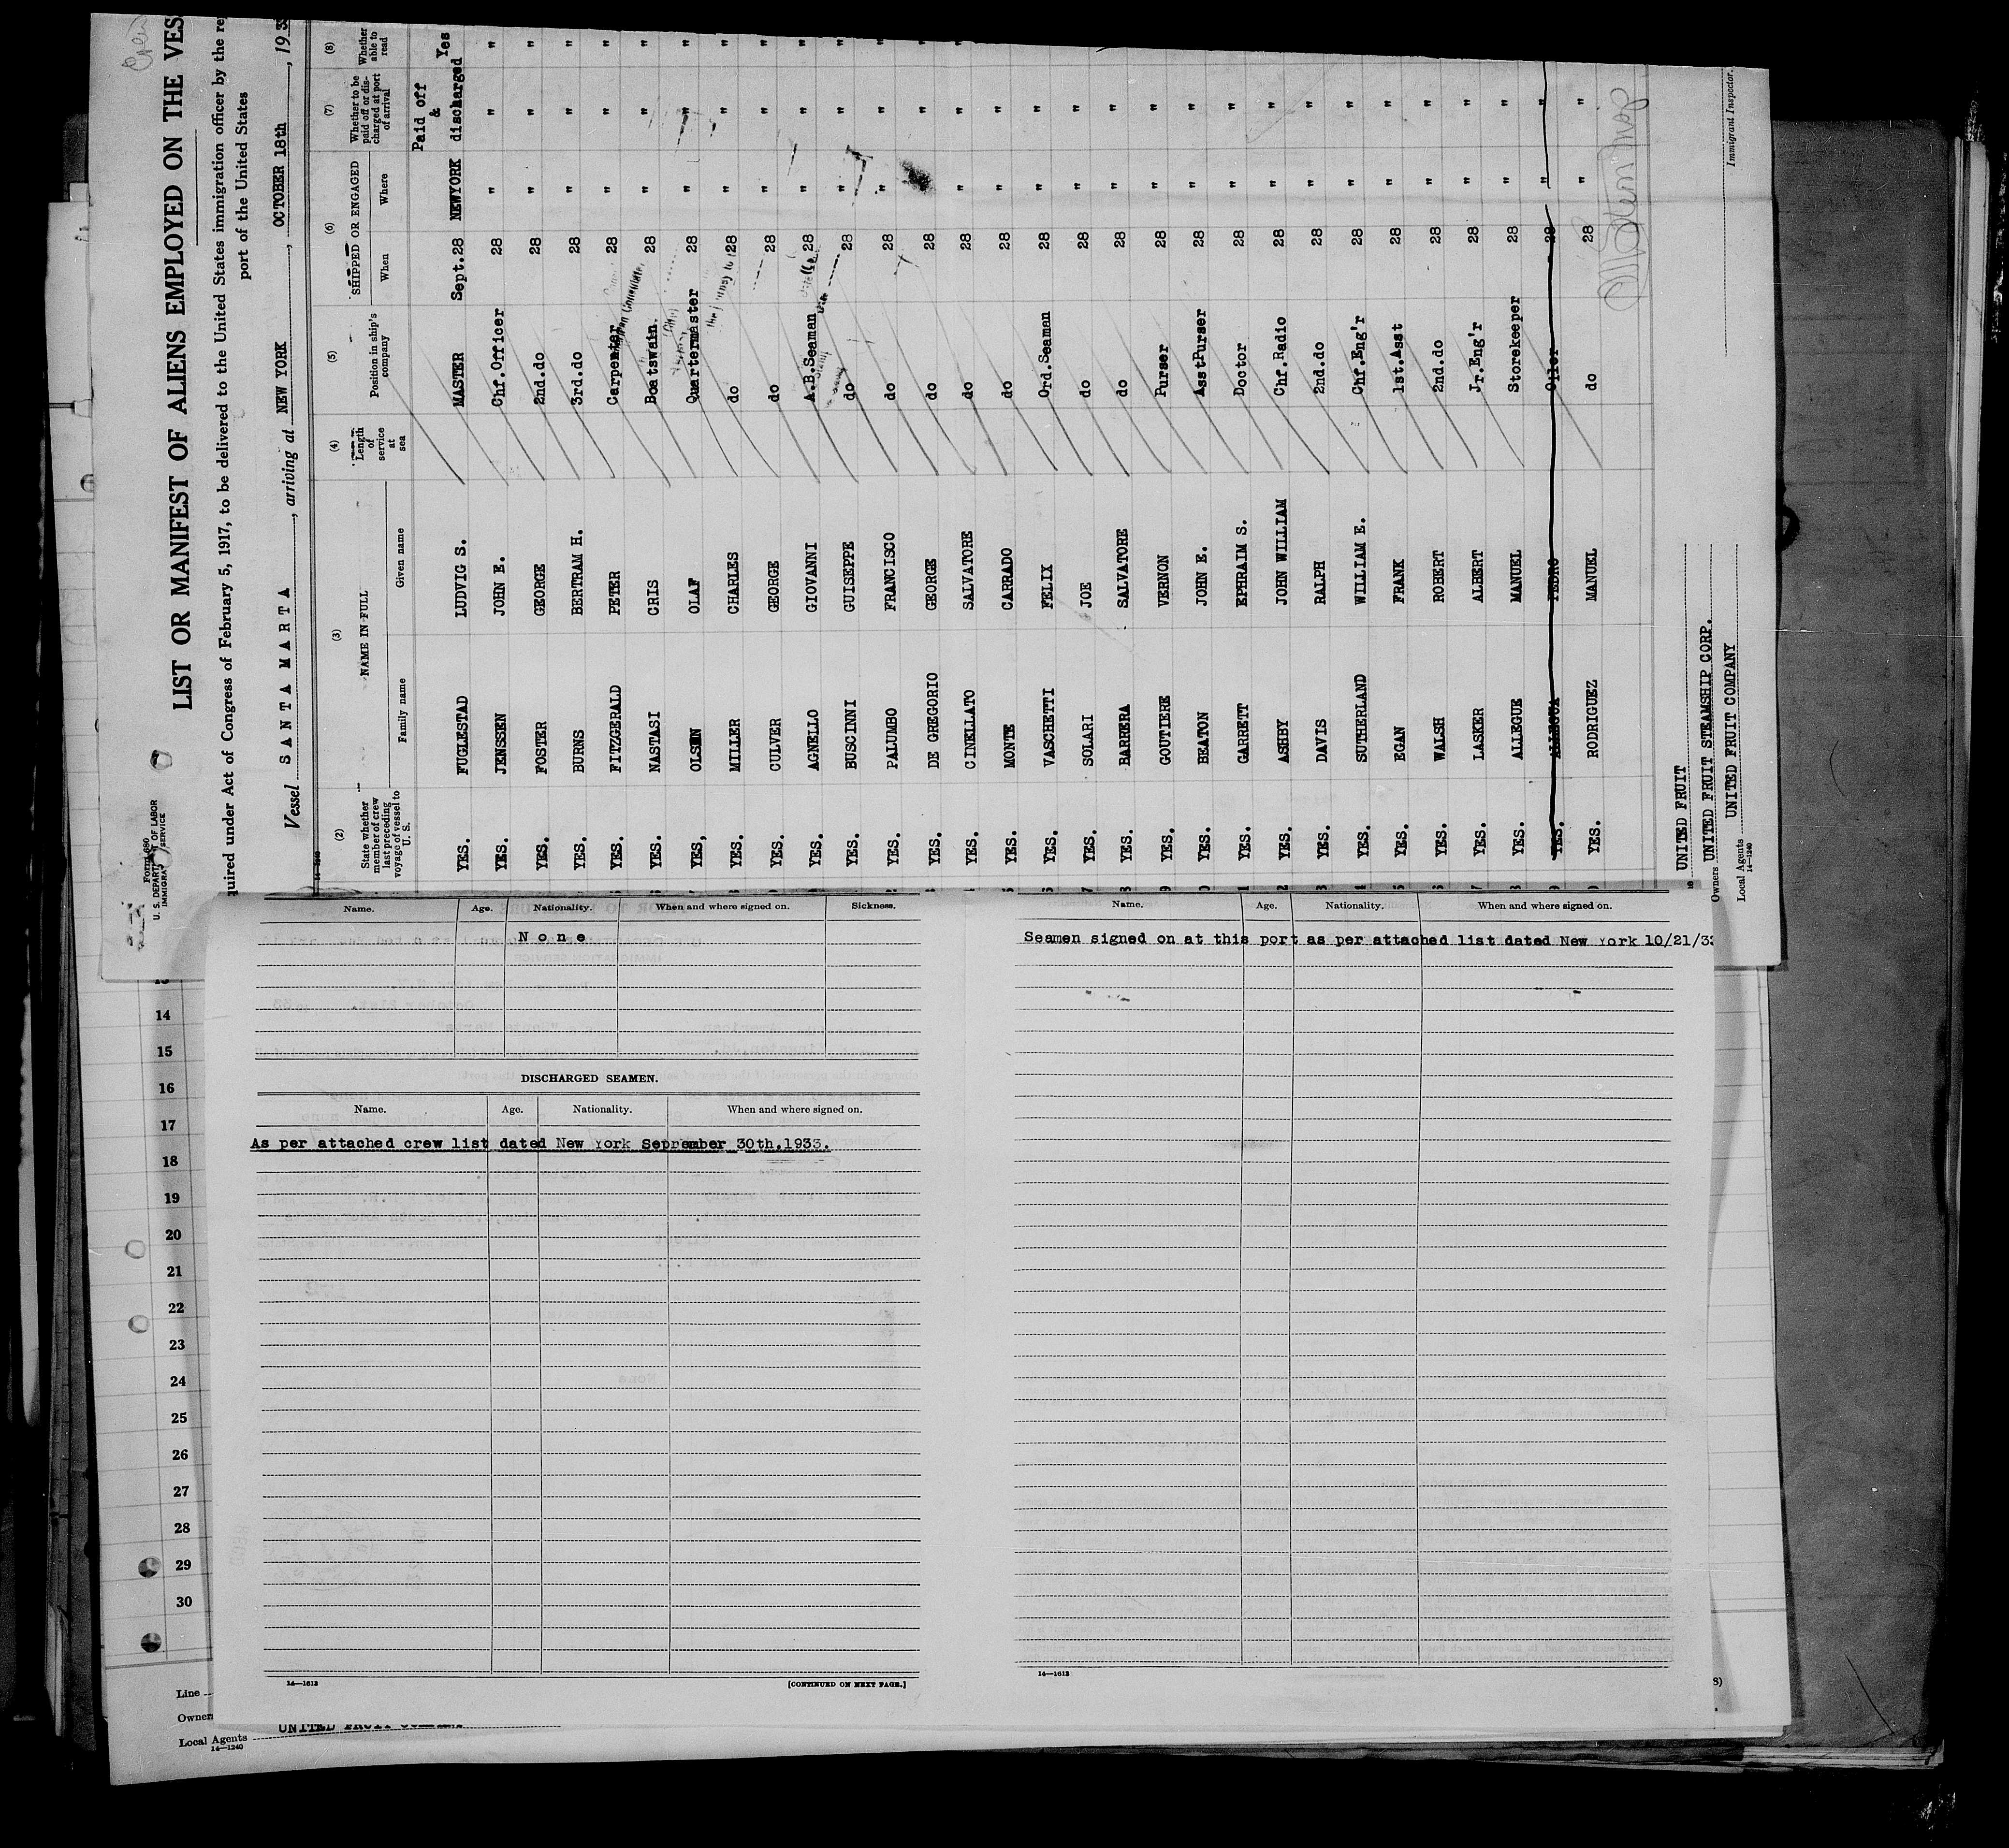 Crew
LIST OR MANIFEST OF ALIENS EMPLOYED ON THE VES
Form 680
U. S. DEPARTMENT OF LABOR
IMMIGRATION SERVICE
quired under Act of Congress of February 5, 1917, to be delivered to the United States immigration officer by the re
port of the United States
Vessel SANTA MARTA, arriving at NEW YORK, OCTOBER 18th, 193
(2) (3) (4) (5) (6) (7) (8)
State whether member of crew last preceding voyage of vessel to U. S. NAME IN FULL Length of service at sea Position in ship's company SHIPPED OR ENGAGED Whether to be paid off or discharged at port of arrival Whether able to read
Family name Given name When Where
Paid off
&
YES. FUGLESTAD LUDVIG S. MASTER Sept.28 NEWYORK discharged Yes
YES. JENSSEN JOHN E. Chf.Officer 28 " " "
YES. FOSTER GEORGE 2nd.do 28 " " "
YES. BURNS BERTRAM H. 3rd.do 28 " " "
YES. FITZGERALD PETER Carpenter 28 " " "
YES. NASTASI CRIS Boatswain. 28 " " "
YES, OLSEN OLAF Quartermaster 28 " " "
YES. MILLER CHARLES do 28 " " "
YES. CULVER GEORGE do 28 " " "
YES. AGNELLO GIOVANNI A.B.Seaman 28 " " "
YES. BUSCINNI GUISEPPE do 28 " " "
YES. PALUMBO FRANCISCO do 28 " " "
YES. DE GREGORIO GEORGE do 28 " "
YES. CINELLATO SALVATORE do 28 " " "
YES. MONTE CARRADO do 28 " "
YES. VASCHETTI FELIX Ord.Seaman 28 " "
YES. SOLARI JOE do 28 " "
YES. BARRERA SALVATORE do 28 " "
YES. GOUTIERE VERNON Purser 28 " "
YES. BEATON JOHN E. AsstPurser 28 " "
YES. GARRETT EPHRAIM S. Doctor 28 " "
YES. ASHBY JOHN WILLIAM Chf.Radio 28 " "
YES. DAVIS RALPH 2nd.do 28 " "
YES. SUTHERLAND WILLIAM E. Chf.Eng'r 28 " "
YES. EGAN FRANK 1st.Asst 28 " "
YES. WALSH ROBERT 2nd.do 28 " "
YES. LASKER ALBERT Jr.Eng'r 28 " "
YES. ALLEGUE MANUEL Storekeeper 28 " "
YES. PEDRO Oiler 28 " "
YES. RODRIGUEZ MANUEL do 28 " "
UNITED FRUIT
Owners UNITED FRUIT STEAMSHIP CORP.
Local Agents UNITED FRUIT COMPANY
14—1240
Immigrant Inspector.
Name. Age. Nationality. When and where signed on. Sickness.
None
DISCHARGED SEAMEN.
Name. Age. Nationality. When and where signed on.
As per attached crew list dated New York September 30th.1933.
14—1613
[CONTINUED ON NEXT PAGE.]
Name. Age. Nationality. When and where signed on.
Seamen signed on at this port as per attached list dated New York 10/21/33
14—1613
14
15
16
17
18
19
20
21
22
23
24
25
26
27
28
29
30
Line
Owners
Local Agents UNITED FRUIT COMPANY
14—1240